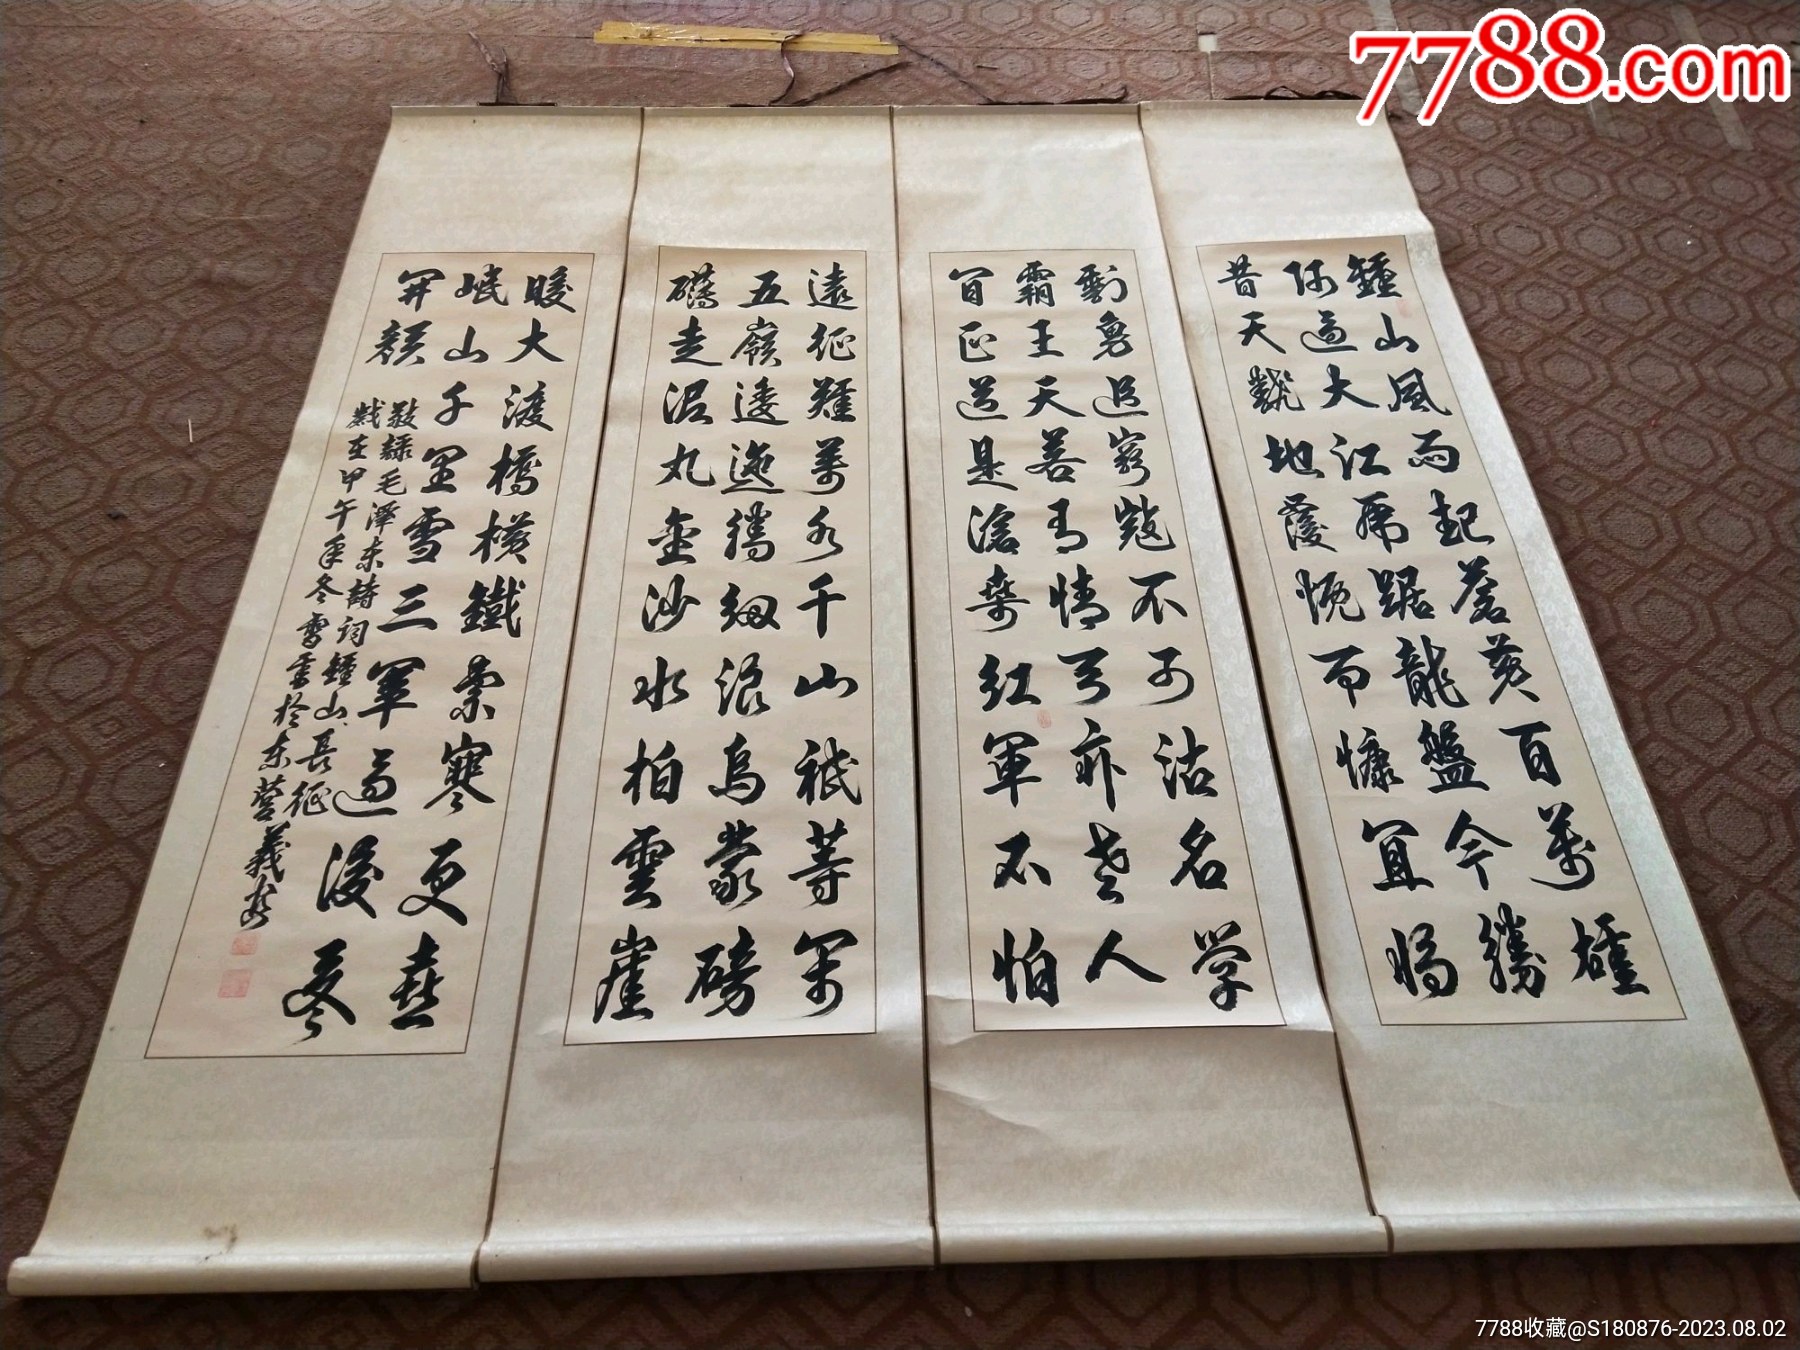 7788.com
鍾山風雨起蒼黃百萬雄
師過大江虎踞龍盤今勝
昔天翻地覆慨而慷宜將
剩勇追窮寇不可沽名学
霸王天若有情天亦老人
間正道是滄桑紅軍不怕
遠征難萬水千山祗等閒
五嶺逶迤騰細浪烏蒙磅
礴走泥丸金沙水拍雲崖
暖大渡橋橫鐵索寒更喜
岷山千里雪三軍過後盡
開顏
敬録毛澤东詩詞鍾山、長征
歲在甲午年冬雪書於东營義
7788收藏@S180876-2023.08.02